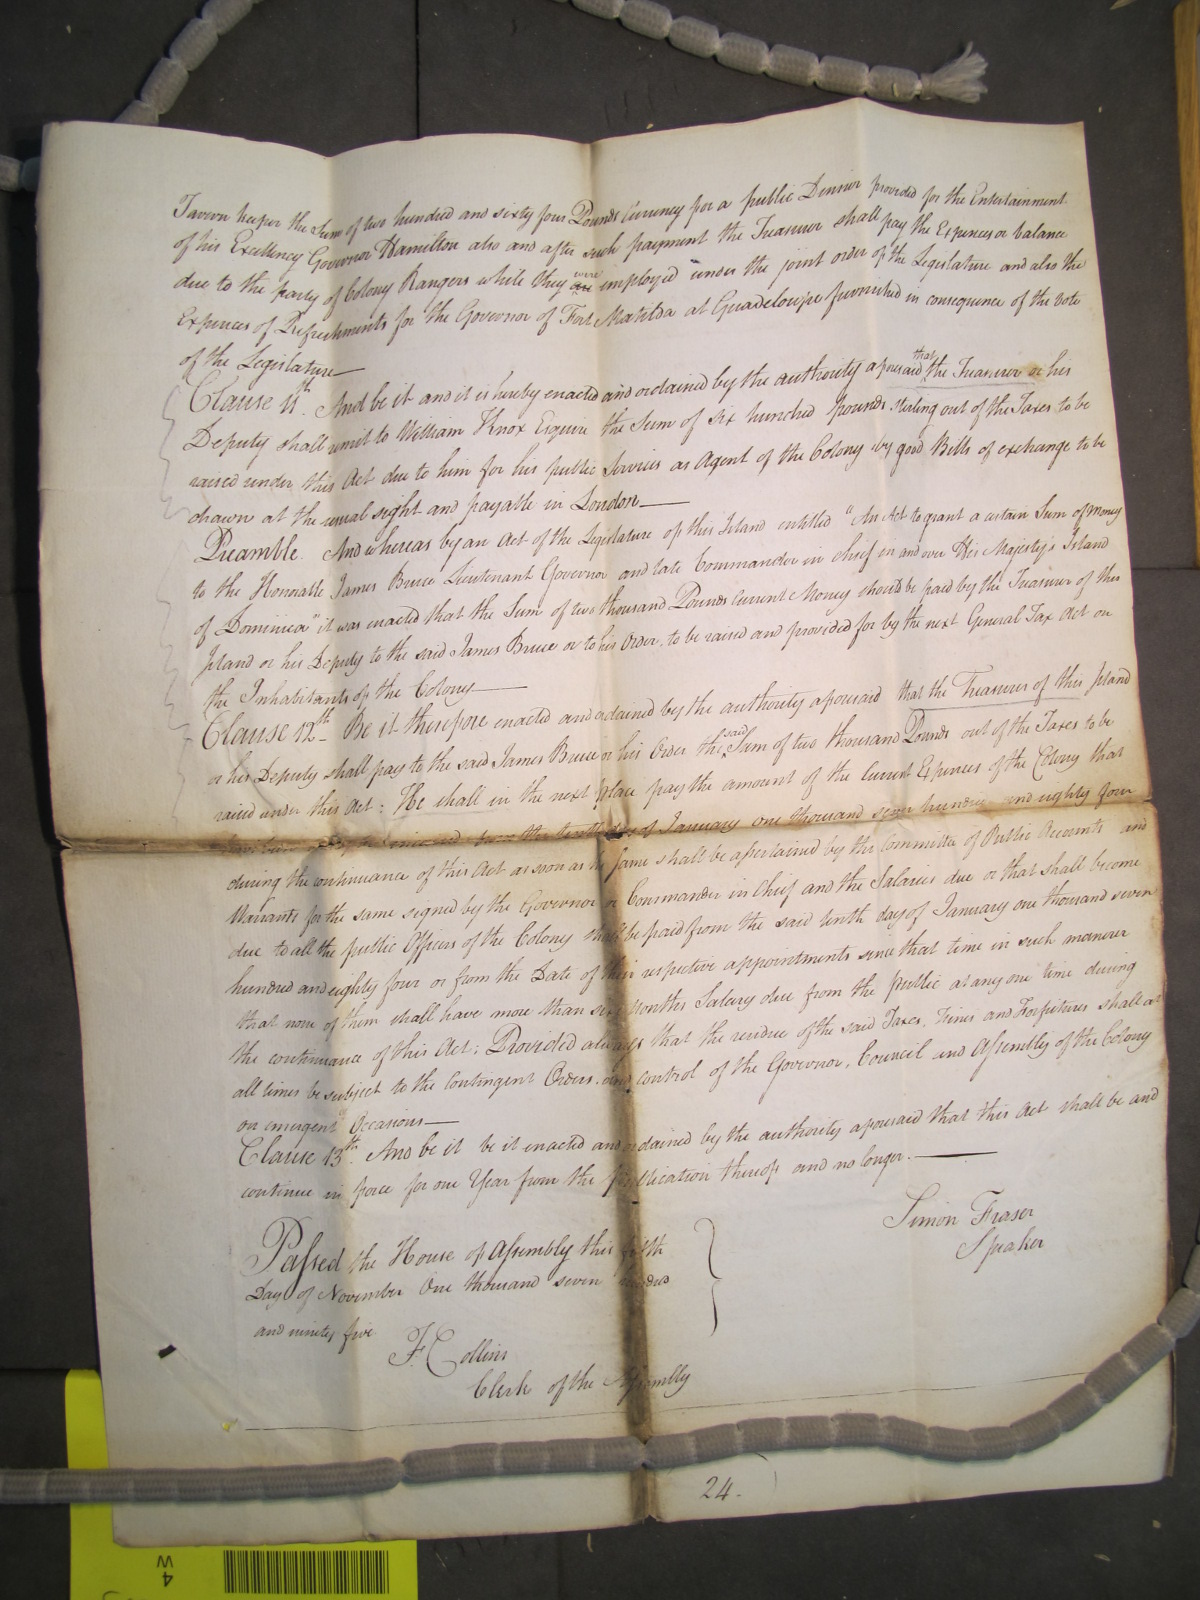 Tavern keeper the Sum of two hundred and sixty four Pounds Currency for a public Dinner provided for the Entertainment
of his Excellency Governor Hamilton also and after such payment the Treasurer shall pay the Expences or balance
due to the party of Colony Rangers while they are were employed under the joint order of the Legislature and also the
Expences of Refreshments for the Governor of Fort Matilda at Guadeloupe furnished in consequence of the Vote
of the Legislature
Clause 11th. And be it and it is hereby enacted and ordained by the authority aforesaid that the Treasurer or his
Deputy shall remit to William Knox Esquire the Sum of six hundred pounds sterling out of the Taxes to be
raised under this Act due to him for his public Services as Agent of the Colony by good Bills of exchange to be
drawn at the usual sight and payable in London
Preamble. And whereas by an Act of the Legislature of this Island entitled "An Act to grant a certain Sum of Money
to the Honorable James Bruce Lieutenant Governor and late Commander in chief in and over His Majesty's Island
of Dominica" it was enacted that the Sum of two thousand Pounds Current Money should be paid by the Treasurer of this
Island or his Deputy to the said James Bruce or to his Order, to be raised and provided for by the next General Tax Act on
the Inhabitants of the Colony
Clause 12th. Be it therefore enacted and ordained by the authority aforesaid that the Treasurer of this Island
or his Deputy shall pay to the said James Bruce or his Order the said Sum of two thousand Pounds out of the Taxes to be
raised under this Act: He shall in the next place pay the amount of the Current Expences of the Colony that
from the tenth day of January one thousand seven hundred and eighty four
during the continuance of this Act as soon as the same shall be ascertained by the Committee of Public Accounts and
Warrants for the same signed by the Governor or Commander in Chief and the Salaries due or that shall become
due to all the public Officers of the Colony shall be paid from the said tenth day of January one thousand seven
hundred and eighty four or from the Date of their respective appointments since that time in such manner
that none of them shall have more than six Months Salary due from the public at any one time during
the continuance of this Act; Provided always that the residue of the said Taxes, Fines and Forfeitures shall at
all times be subject to the Contingent Orders and control of the Governor, Council and Assembly of the Colony
on emergent Occasions
Clause 13th. And be it be it enacted and ordained by the authority aforesaid that this Act shall be and
continue in force for one Year from the publication thereof and no longer.
Simon Fraser
Speaker
Passed the House of Assembly this
Day of November One thousand seven hundred
and ninety five
F. Collins
Clerk of the Assembly
24.
4
W